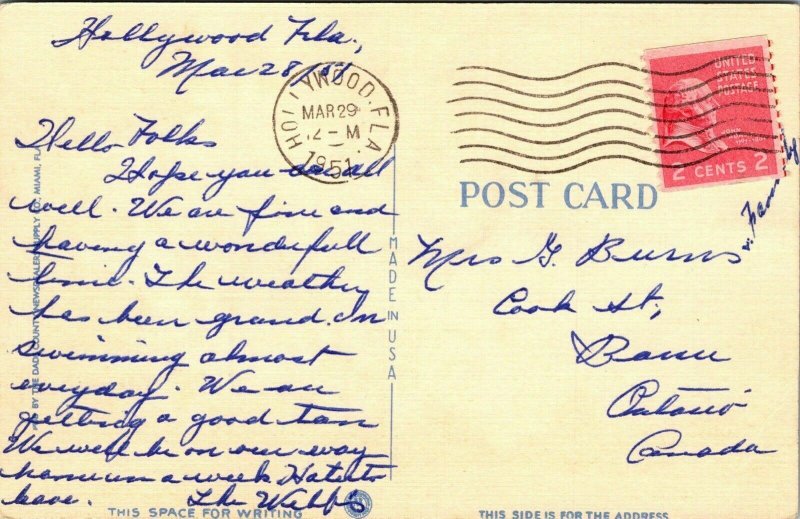 Hollywood Fla.,
Mar 28/51
HOLLYWOOD, FLA.
MAR 29
12 - M
1951
UNITED
STATES
POSTAGE
2 CENTS 2
POST CARD
Hello Folks
Hope you are all
well. We are fine and
having a wonderfull
time. The weather
has been grand. In
swimming almost
everyday. We are
getting a good tan
We will be on our way
home in a week. Hate to
leave. The Webb's
Mrs G. Burns
& Family
Cook St,
Barrie
Ontario
Canada
MADE IN USA
BY THE DADE COUNTY NEWSDEALERS SUPPLY CO., MIAMI, FLA.
THIS SPACE FOR WRITING
THIS SIDE IS FOR THE ADDRESS